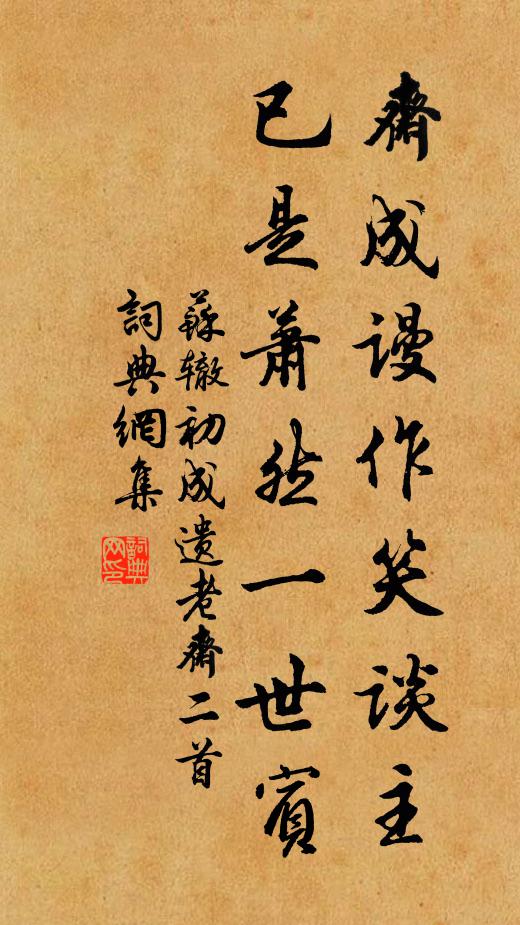 齋成謾作笑談主
已是蕭然一世賓
蘇辙初成遺老齋二首
詞典網集
詞典
网印